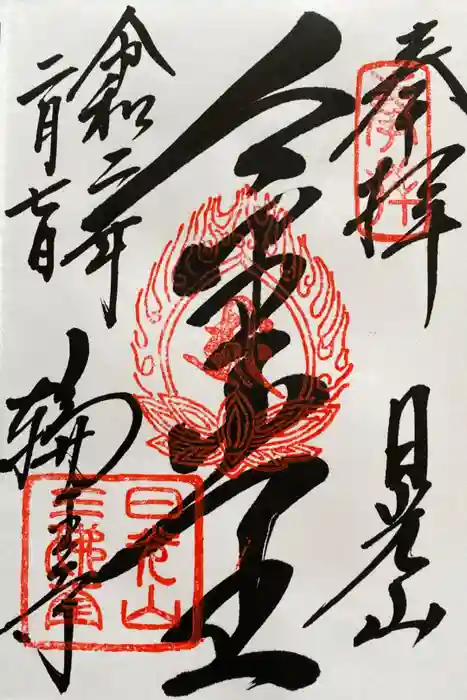 奉拝
日光山
令和二年
二月七日
輪王寺
奉拝
日光山
三佛堂